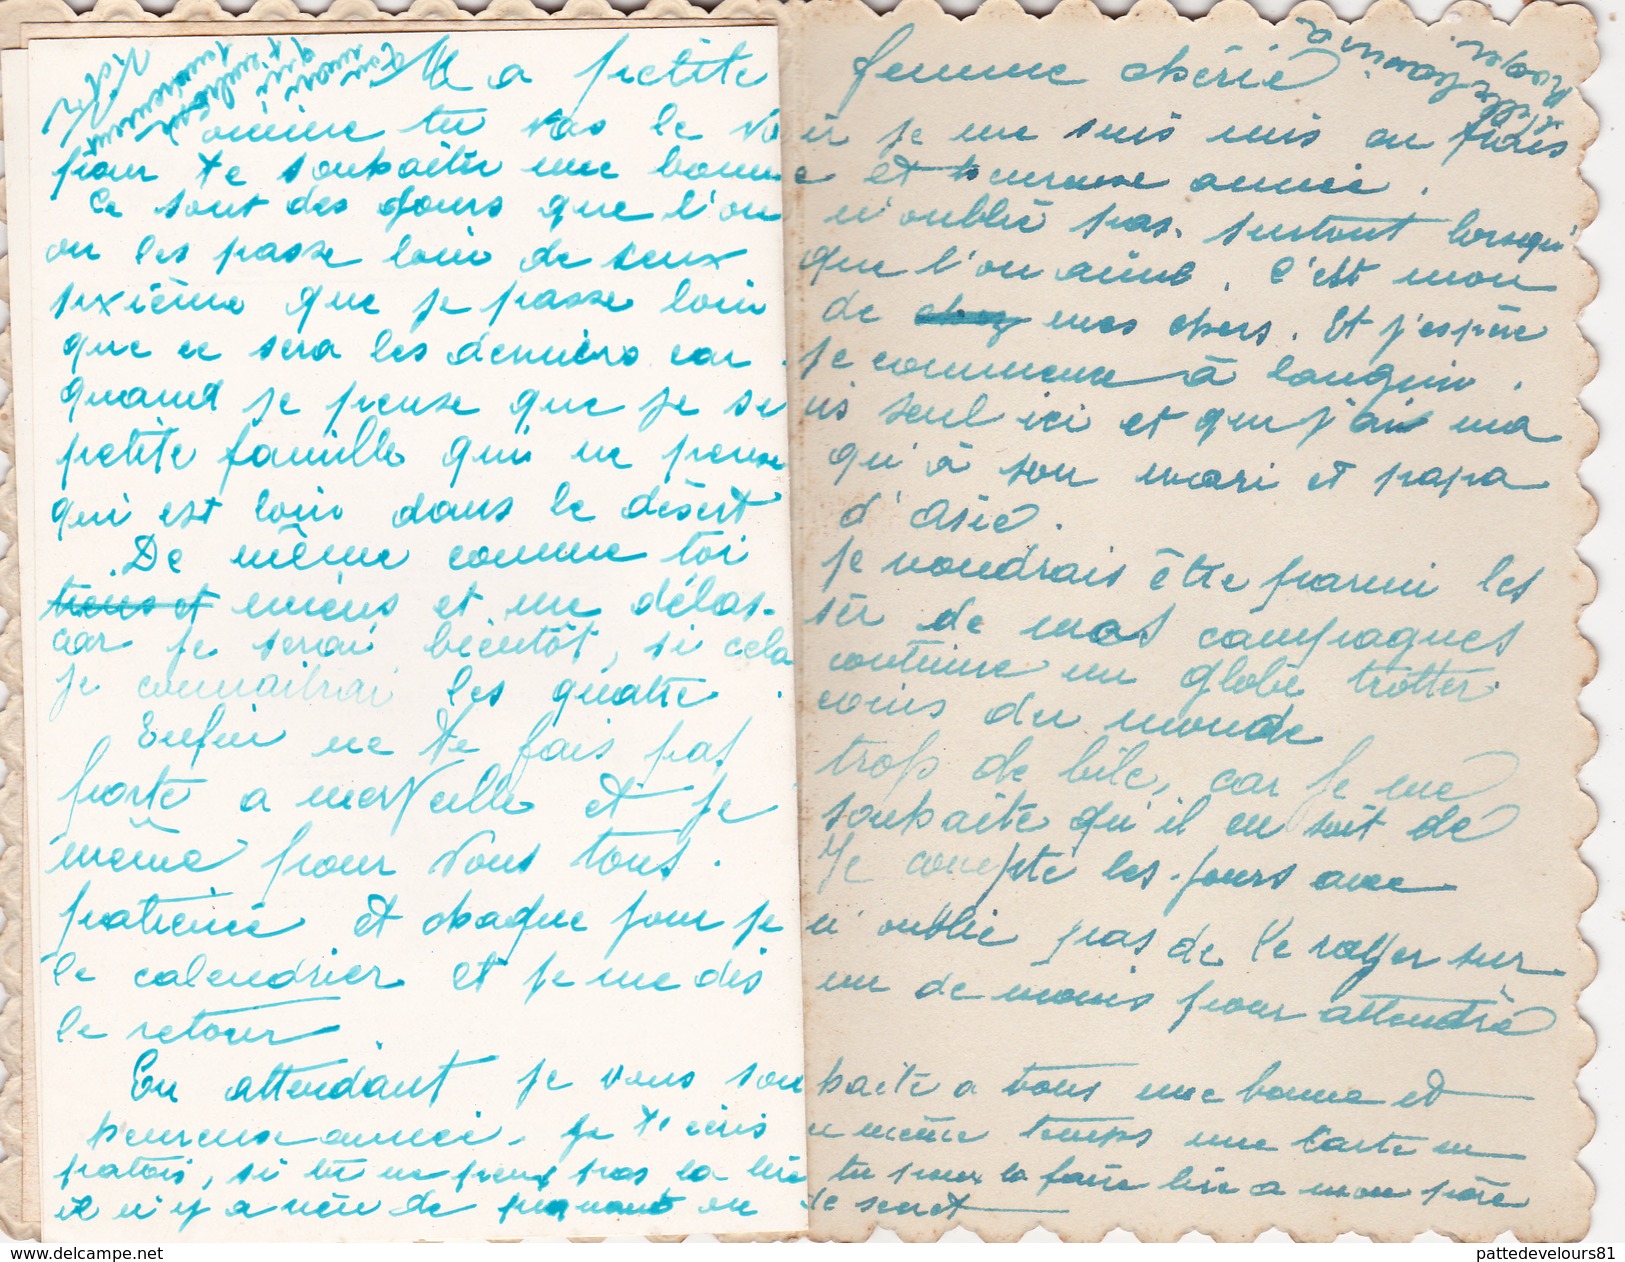 Ma petite femme chérie
Comme tu vas le voir je me suis mis au frais
pour te souhaiter une bonne et heureuse année.
Ce sont des jours que l'on n'oublie pas. surtout lorsqu'
on les passe loin de ceux que l'on aime. C'est mon
sixième que je passe loin de chez mes chers. Et j'espère
que ce sera les derniers car je commence à languir.
quand je pense que je suis seul ici et que j'ai ma
petite famille qui ne pense qu'à son mari et papa
qui est loin dans le désert d'Asie.
De même comme toi je voudrais être parmi les
tiens et miens et me délasser de mes campagnes
car je serai bientôt, si cela continue un globe trotter
je connaitrai les quatre coins du monde
Enfin ne te fais pas trop de bile, car je me
porte a merveille et je souhaite qu'il en soit de
même pour vous tous. Je compte les jours avec
patience et chaque jour je n'oublie pas de le rayer sur
le calendrier et je me dis un de moins pour attendre
le retour.
En attendant je vous souhaite a tous une bonne et
heureuse année. Je t'écris en même temps une carte en
patois, si tu ne peux pas la lire tu peux la faire lire a mon père
il n'y a rien de piquant ou de secret
pattedevelours81